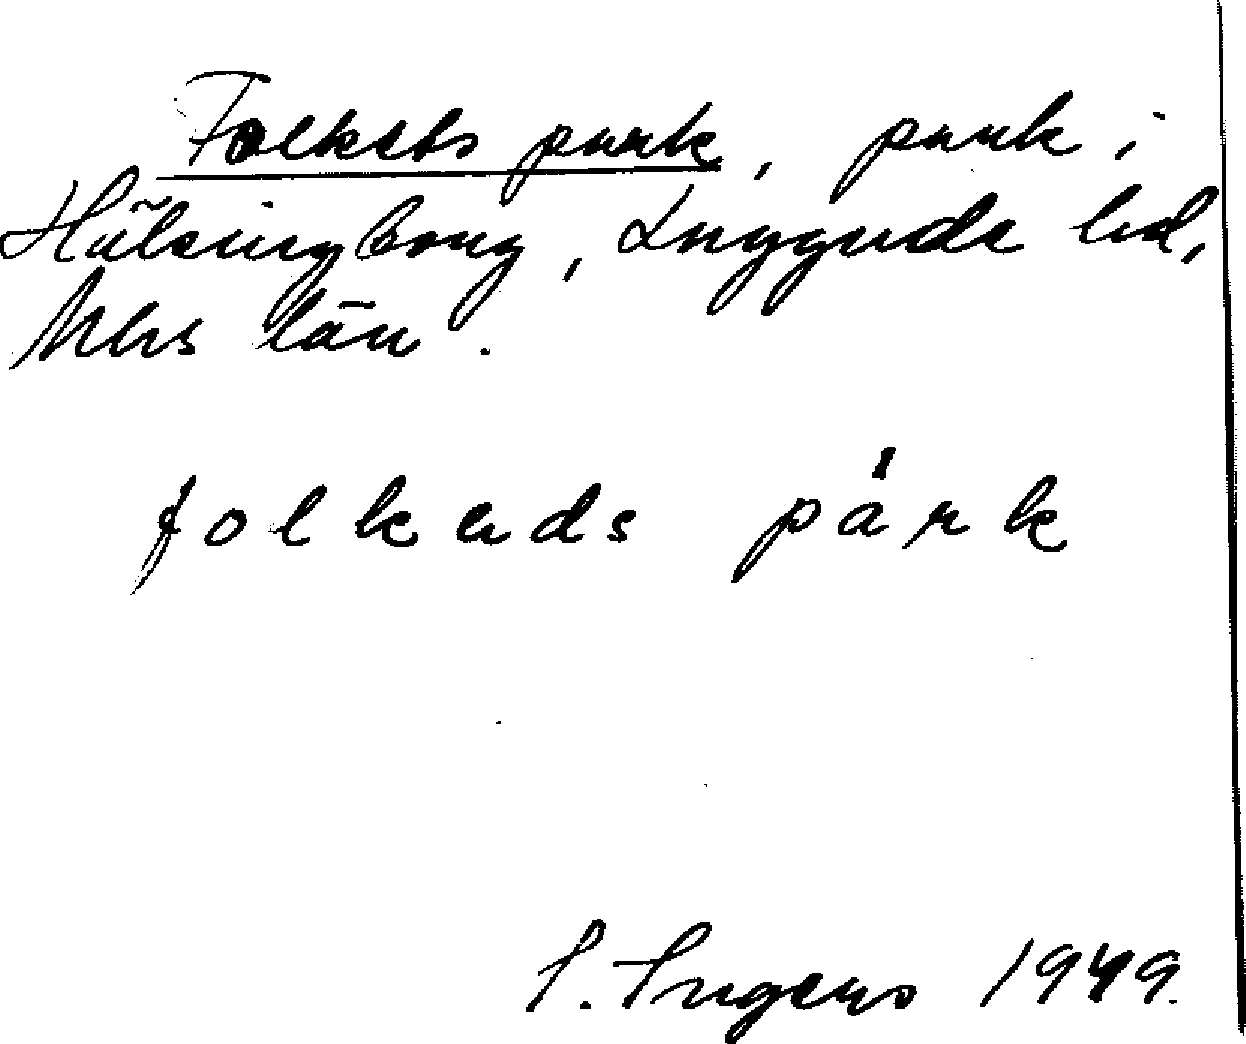 Folkets park, park i
Hälsingborg, Luggude hd,
Mhs län.
folkeds park
I. Ingers 1949.